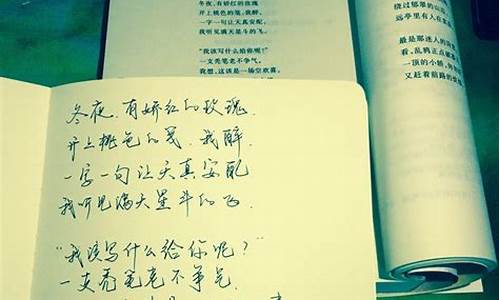 冬夜,有娇红的玫瑰
开上桃色的笺,我醉,
一字一句让天真安配,
我听见满天星斗的飞。
“我该写什么给你呢?”
一支秃笔老不争气,
我想,这该是一场空欢喜,
绕过郁翠的山
远亭里有人在
最是那迷人的
看,乱鸦正点
一顶的小轿,
又赶着前路的
冬夜,有娇红的玫瑰.
开上桃色的笺.我醉.
一字一句让天真安配
我听见满天星斗的飞.
“我该写什么给你呢?”
一支秃笔老不争气.